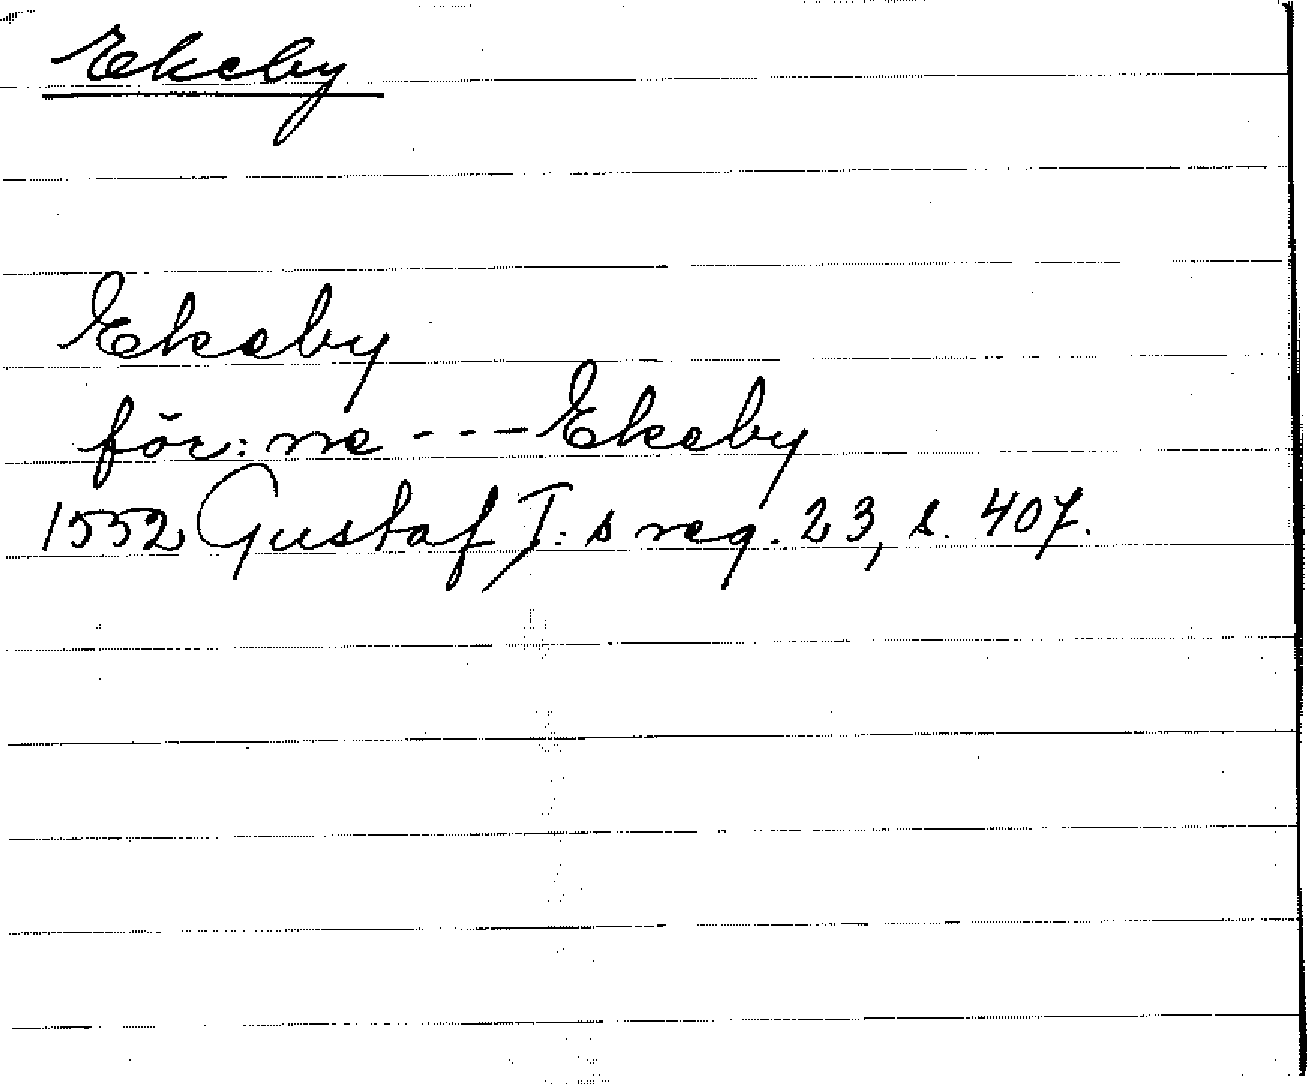 Ekeby
Ekeby
för: ne - - - Ekeby
1552 Gustaf I: s reg. 23, s. 407.